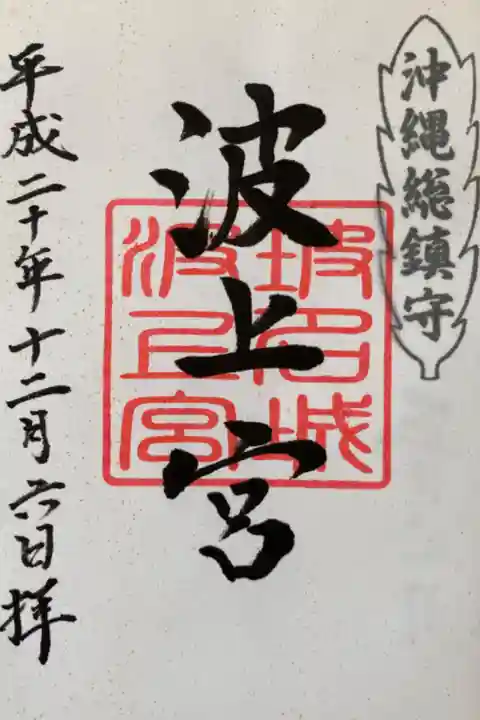 沖縄総鎮守
波上宮
坡名城
波上宮
平成二十年十二月六日拝